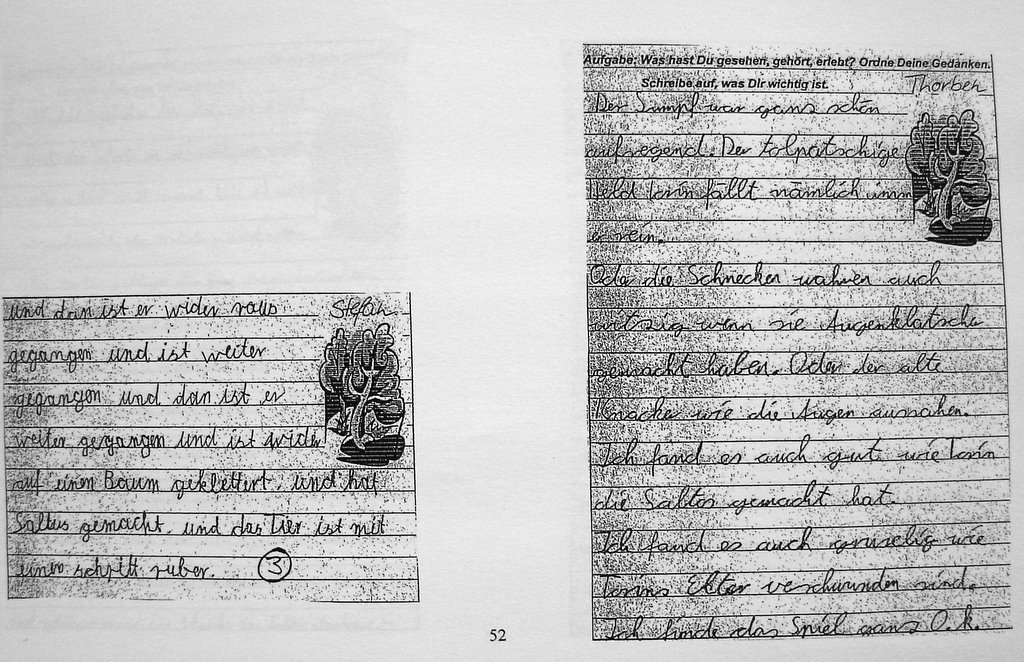 und dan ist er wider raus
Stefan
gegangen und ist weiter
gegangen und dan ist er
weiter gegangen und ist wider
auf einen Baum geklettert und hat
Saltus gemacht. und das Tier ist mit
einen schritt rüber. 3
52
Aufgabe: Was hast Du gesehen, gehört, erlebt? Ordne Deine Gedanken.
Schreibe auf, was Dir wichtig ist.
Thorben
Der Sumpf war gans schön
aufregend. Der tolpatschige
Held Torin fällt nämlich imm
er rein.
Oder die Schnecken wahren auch
witzig wenn sie Augenklatsche
gemacht haben. Oder der alte
Knacker wie die Augen aussahen.
Ich fand es auch gut wie Torin
die Saltos gemacht hat.
Ich fand es auch gruselig wie
Torins Elter verschwunden sind.
Ich finde das Spiel gans O.k.